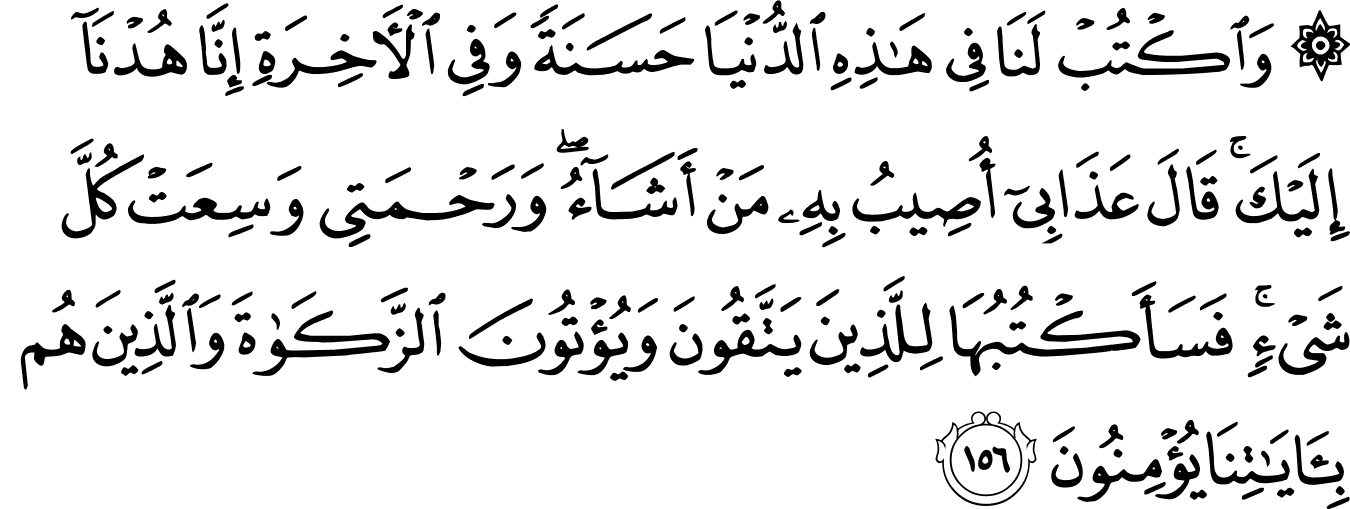 ۞ وَٱكۡتُبۡ لَنَا فِي هَٰذِهِ ٱلدُّنۡيَا حَسَنَةٗ وَفِي ٱلۡأٓخِرَةِ إِنَّا هُدۡنَآ
إِلَيۡكَۚ قَالَ عَذَابِيٓ أُصِيبُ بِهِۦ مَنۡ أَشَآءُۖ وَرَحۡمَتِي وَسِعَتۡ كُلَّ
شَيۡءٖۚ فَسَأَكۡتُبُهَا لِلَّذِينَ يَتَّقُونَ وَيُؤۡتُونَ ٱلزَّكَوٰةَ وَٱلَّذِينَ هُم
بِـَٔايَٰتِنَا يُؤۡمِنُونَ ١٥٦